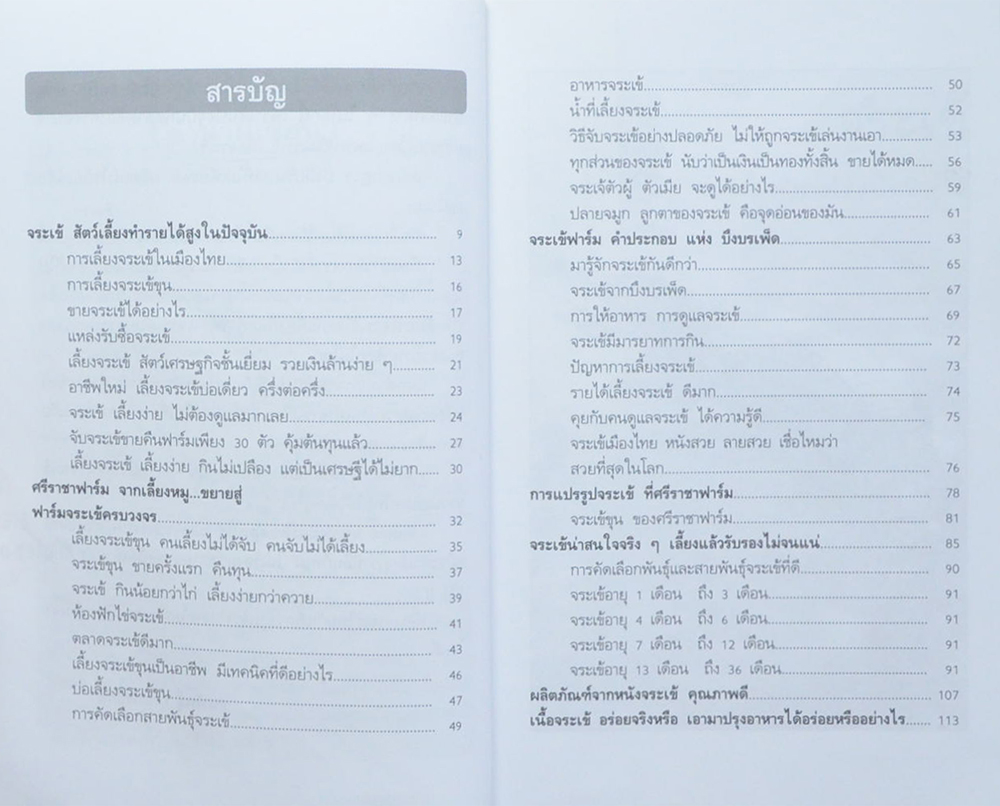 สารบัญ
จระเข้ สัตว์เลี้ยงทำรายได้สูงในปัจจุบัน........................................ 9
การเลี้ยงจระเข้ในเมืองไทย........................................ 13
การเลี้ยงจระเข้ขุน........................................ 16
ขายจระเข้ได้อย่างไร........................................ 17
แหล่งรับซื้อจระเข้........................................ 19
เลี้ยงจระเข้ สัตว์เศรษฐกิจชั้นเยี่ยม รวยเงินล้านง่าย ๆ............ 21
อาชีพใหม่ เลี้ยงจระเข้บ่อเดี่ยว ครึ่งต่อครึ่ง........................ 23
จระเข้ เลี้ยงง่าย ไม่ต้องดูแลมากเลย........................ 24
จับจระเข้ขายคืนฟาร์มเพียง 30 ตัว คุ้มต้นทุนแล้ว............ 27
เลี้ยงจระเข้ เลี้ยงง่าย กินไม่เปลือง แต่เป็นเศรษฐีได้ไม่ยาก...... 30
ศรีราชาฟาร์ม จากเลี้ยงหมู...ขยายสู่
ฟาร์มจระเข้ครบวงจร........................................ 32
เลี้ยงจระเข้ขุน คนเลี้ยงไม่ได้จับ คนจับไม่ได้เลี้ยง............ 35
จระเข้ขุน ขายครั้งแรก คืนทุน........................................ 37
จระเข้ กินน้อยกว่าไก่ เลี้ยงง่ายกว่าควาย........................ 39
ห้องฟักไข่จระเข้........................................ 41
ตลาดจระเข้ดีมาก........................................ 43
เลี้ยงจระเข้ขุนเป็นอาชีพ มีเทคนิคที่ดีอย่างไร.................. 46
บ่อเลี้ยงจระเข้ขุน........................................ 47
การคัดเลือกสายพันธุ์จระเข้........................................ 49
อาหารจระเข้........................................ 50
น้ำที่เลี้ยงจระเข้........................................ 52
วิธีจับจระเข้อย่างปลอดภัย ไม่ให้ถูกจระเข้เล่นงานเอา............ 53
ทุกส่วนของจระเข้ นับว่าเป็นเงินเป็นทองทั้งสิ้น ขายได้หมด..... 56
จระเจ้ตัวผู้ ตัวเมีย จะดูได้อย่างไร........................ 59
ปลายจมูก ลูกตาของจระเข้ คือจุดอ่อนของมัน.................. 61
จระเข้ฟาร์ม คำประกอบ แห่ง บึงบรเพ็ด........................ 63
มารู้จักจระเข้กันดีกว่า........................................ 65
จระเข้จากบึงบรเพ็ด........................................ 67
การให้อาหาร การดูแลจระเข้........................................ 69
จระเข้มีมารยาทการกิน........................................ 72
ปัญหาการเลี้ยงจระเข้........................................ 73
รายได้เลี้ยงจระเข้ ดีมาก........................................ 74
คุยกับคนดูแลจระเข้ ได้ความรู้ดี........................................ 75
จระเข้เมืองไทย หนังสวย ลายสวย เชื่อไหมว่า
สวยที่สุดในโลก........................................ 76
การแปรรูปจระเข้ ที่ศรีราชาฟาร์ม........................................ 78
จระเข้ขุน ของศรีราชาฟาร์ม........................................ 81
จระเข้น่าสนใจจริง ๆ เลี้ยงแล้วรับรองไม่จนแน่.................. 85
การคัดเลือกพันธุ์และสายพันธุ์จระเข้ที่ดี........................ 90
จระเข้อายุ 1 เดือน ถึง 3 เดือน........................ 91
จระเข้อายุ 4 เดือน ถึง 6 เดือน........................ 91
จระเข้อายุ 7 เดือน ถึง 12 เดือน........................ 91
จระเข้อายุ 13 เดือน ถึง 36 เดือน........................ 91
ผลิตภัณฑ์จากหนังจระเข้ คุณภาพดี........................ 107
เนื้อจระเข้ อร่อยจริงหรือ เอามาปรุงอาหารได้อร่อยหรืออย่างไร...... 113